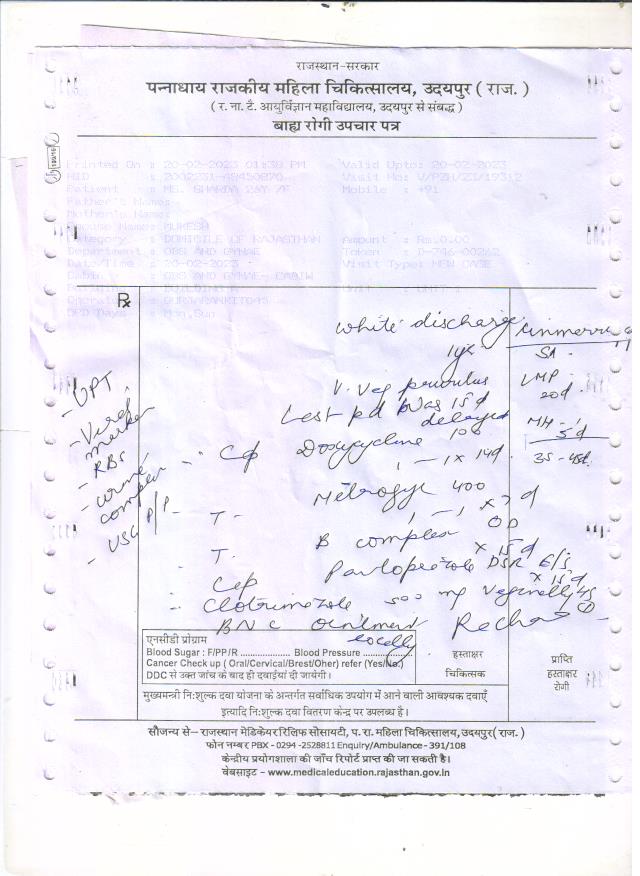 राजस्थान-सरकार
पन्नाधाय राजकीय महिला चिकित्सालय, उदयपुर ( राज. )
( र. ना. टै. आयुर्विज्ञान महाविद्यालय, उदयपुर से संबद्ध )
बाह्य रोगी उपचार पत्र
Printed On : 20-02-2023 01:38 PM Valid Upto: 20-02-2023
Patient : MS. SHARDA 26Y /F Mobile : +91
Father's Name:
Mother's Name:
Spouse Name: MUKESH
Category : DOMICILE OF RAJASTHAN Amount : Rs.0.00
Department : OBS AND GYNAE Token : D-746-00262
Date/Time : 20-02-2023 Visit Type: NEW CASE
OPD Days : Mon,Sun
Rx
white discharge
LMP
20d
- UPT
Last pd was 15d
delayed
MH -
5d
- Viral
marker
- RBS
Doxycycline 100
1 - 1 x 14d
- urine
complex
Metrogyl 400
1 - 1 x 7d
- USG P/P
T. B complex OD
x 15d
Cap Pantoprazole DSR E/S
x 15d
Clotrimazole 500 mg Vaginally
BNC ointment
locally
एनसीडी प्रोग्राम
Blood Sugar : F/PP/R .................. Blood Pressure ..............
Cancer Check up ( Oral/Cervical/Brest/Oher) refer (Yes/No.)
DDC से उक्त जांच के बाद ही दवाईयां दी जायेगी।
हस्ताक्षर
चिकित्सक
प्राप्ति
हस्ताक्षर
रोगी
मुख्यमन्त्री नि:शुल्क दवा योजना के अन्तर्गत सर्वाधिक उपयोग में आने वाली आवश्यक दवाएँ
इत्यादि नि:शुल्क दवा वितरण केन्द्र पर उपलब्ध है।
सौजन्य से– राजस्थान मेडिकेयर रिलिफ सोसायटी, प. रा. महिला चिकित्सालय, उदयपुर( राज. )
फोन नम्बर PBX - 0294 -2528811 Enquiry/Ambulance - 391/108
केन्द्रीय प्रयोगशाला की जाँच रिपोर्ट प्राप्त की जा सकती है।
वेबसाइट - www.medicaleducation.rajasthan.gov.in